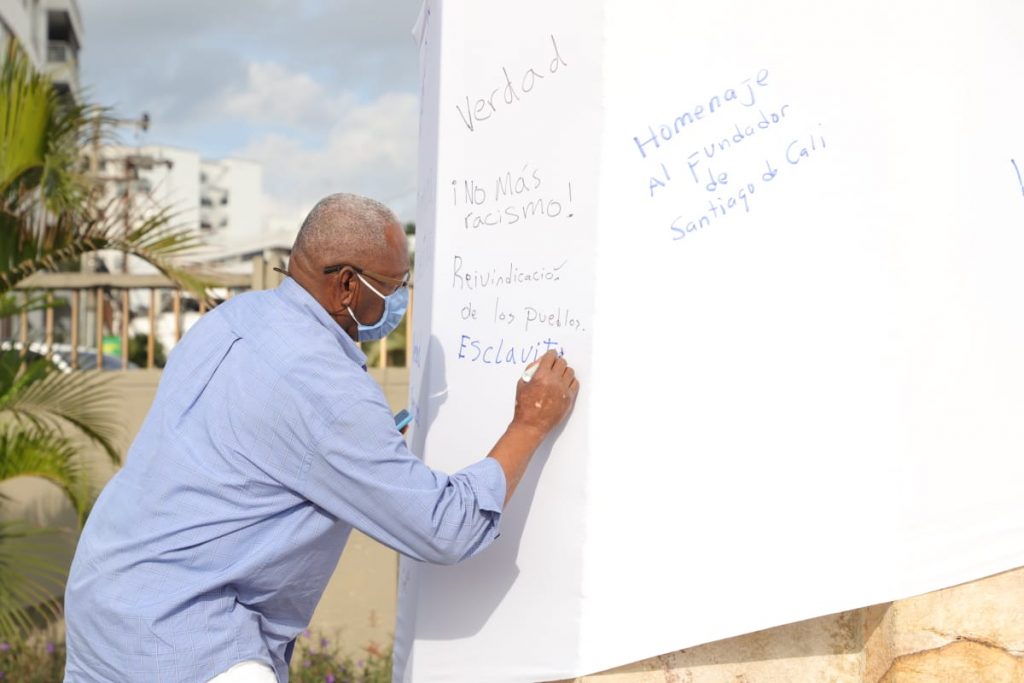 Verdad
¡No Más
racismo!
Reivindicación
de los pueblos.
Homenaje
Al Fundador
de
Santiago de Cali